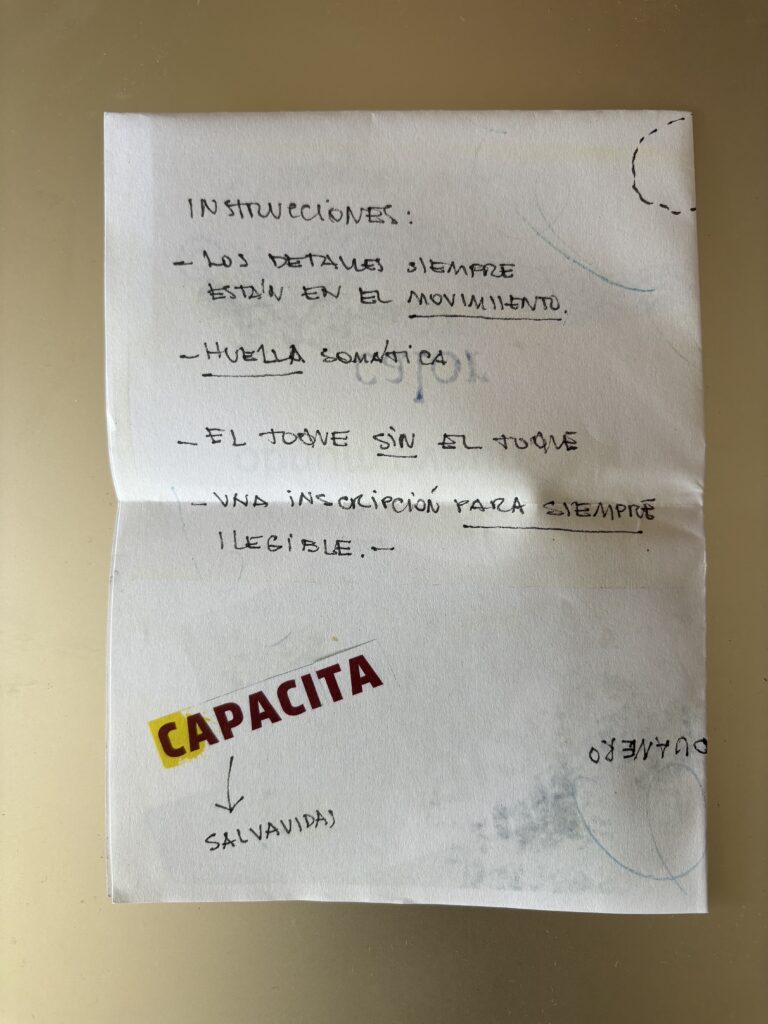 INSTRUCCIONES:
- LOS DETALLES SIEMPRE
ESTÁN EN EL MOVIMIENTO.
- HUELLA SOMÁTICA
- EL TOQUE SIN EL TOQUE
- UNA INSCRIPCIÓN PARA SIEMPRE
ILEGIBLE.-
CAPACITA
SALVAVIDAS